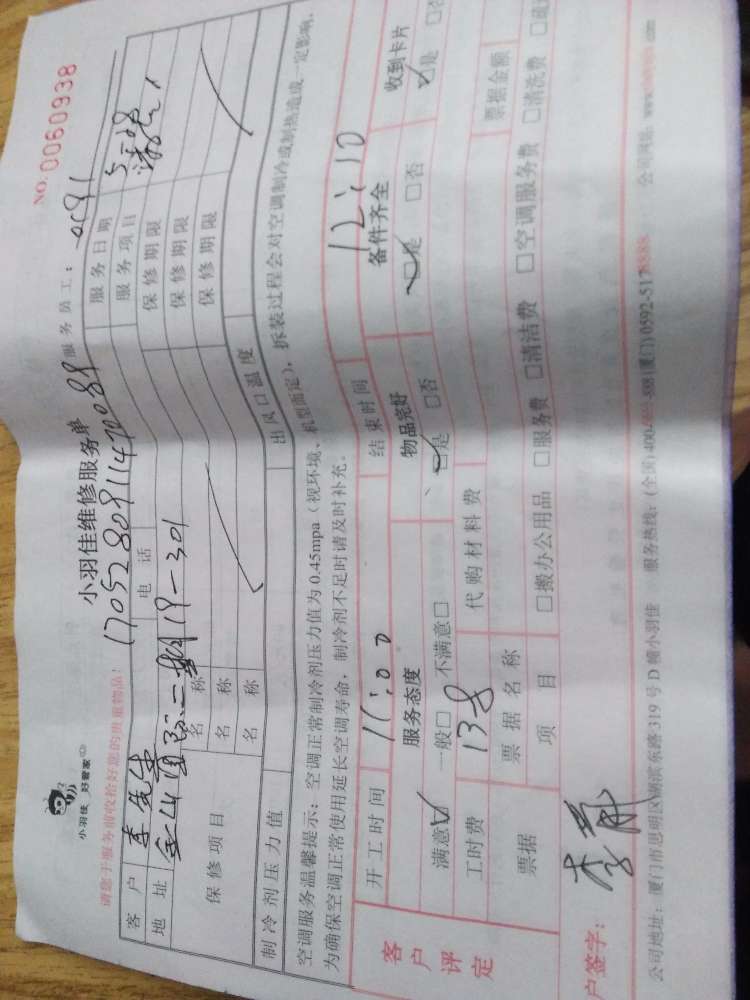 小羽佳 好管家
NO. 0060938
小羽佳维修服务单
请您于服务前收拾好您的贵重物品!
170528091147
服务员工:
客户 李先生 电话 服务日期
地址 金山国际二期19-301 服务项目
保修项目 名称 保修期限
名称 保修期限
名称 保修期限
制冷剂压力值 出风口温度
空调服务温馨提示:空调正常制冷剂压力值为0.45mpa(视环境、机型而定),拆装过程会对空调制冷或制热造成一定影响,
为确保空调正常使用延长空调寿命,制冷剂不足时请及时补充。
客户评定
开工时间 11:00 结束时间 12:10
服务态度 物品完好 备件齐全 收到卡片
满意☑ 一般□ 不满意□ ☑是 □否 ☑是 □否 ☑是
工时费 138 代购材料费 票据金额
票据 票据名称
项目 □搬办公用品 □服务费 □清洁费 □空调服务费 □清洗费
户签字:
公司地址:厦门市思明区湖滨东路319号D幢小羽佳 服务热线:(全国)400- (厦门)0592-517 公司网站: www. .com